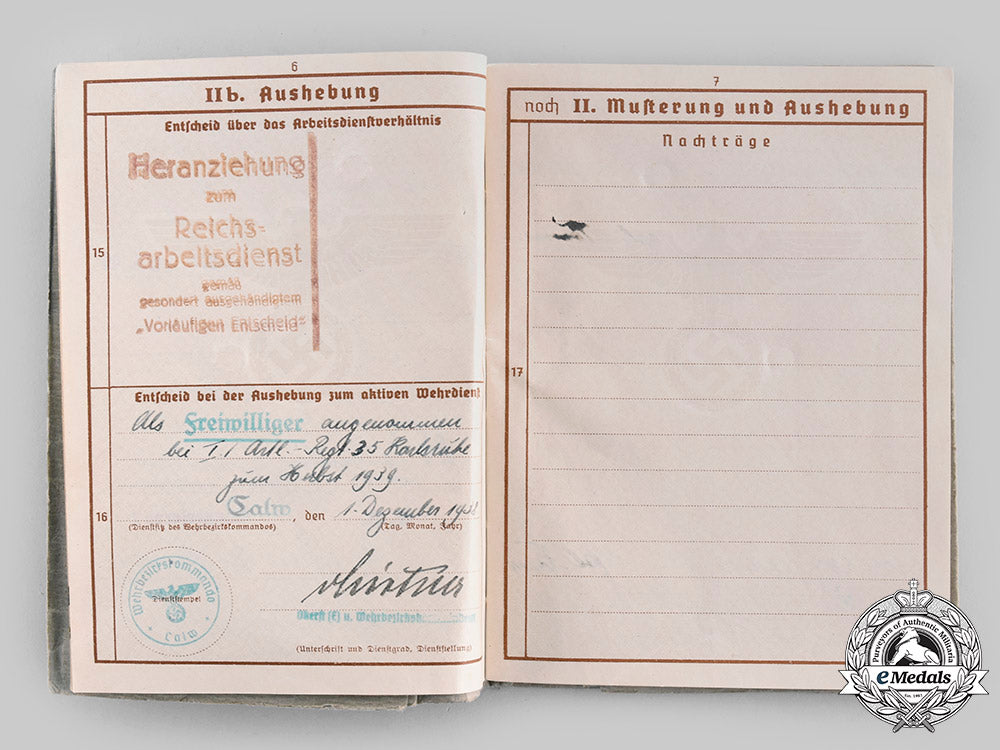 6
IIb. Aushebung
Entscheid über das Arbeitsdienstverhältnis
15
Heranziehung
zum
Reichs-
arbeitsdienst
gemäß
gesondert ausgehändigtem
„Vorläufigen Entscheid"
Entscheid bei der Aushebung zum aktiven Wehrdienst
Als Freiwilliger angenommen
bei I./ Artl.-Regt. 35 Karlsruhe
zum Herbst 1939.
16
Calw, den 1. Dezember 1938
(Dienstsitz des Wehrbezirkskommandos) (Tag, Monat, Jahr)
Wehrbezirkskommando
Dienststempel
Calw
Oberst (E) u. Wehrbezirksk
(Unterschrift und Dienstgrad, Dienststellung)
7
noch II. Musterung und Aushebung
Nachträge
17
Purveyors of Authentic Militaria
eMedals